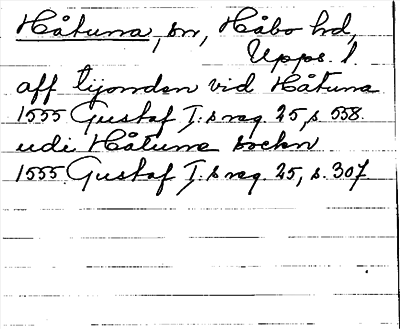 Håtuna, sn, Håbo hd,
Upps. l.
aff tijonden vid Håtuna
1555 Gustaf I:s reg. 25, s. 558.
udi Håtuna sockn
1555 Gustaf I:s reg. 25, s. 307.